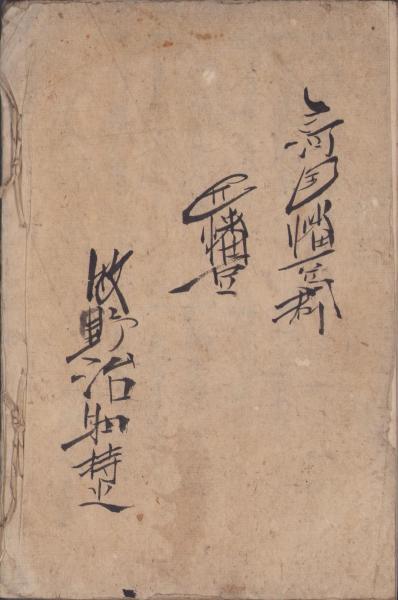 三河国幡豆郡
西幡豆
牧野治助持之